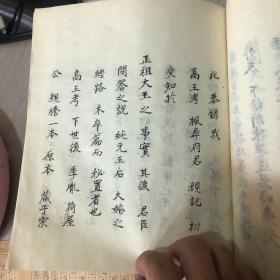 此恭錄我
高王考 楓皐府君 親記 初
受知於
正祖大王之事實 其後 君臣
問答之說 純元王后 大婚之
經路 未卒篇而 秘置者也
高王考 下世後 季胤 荷屋
公 親謄一本 原本 藏于宗